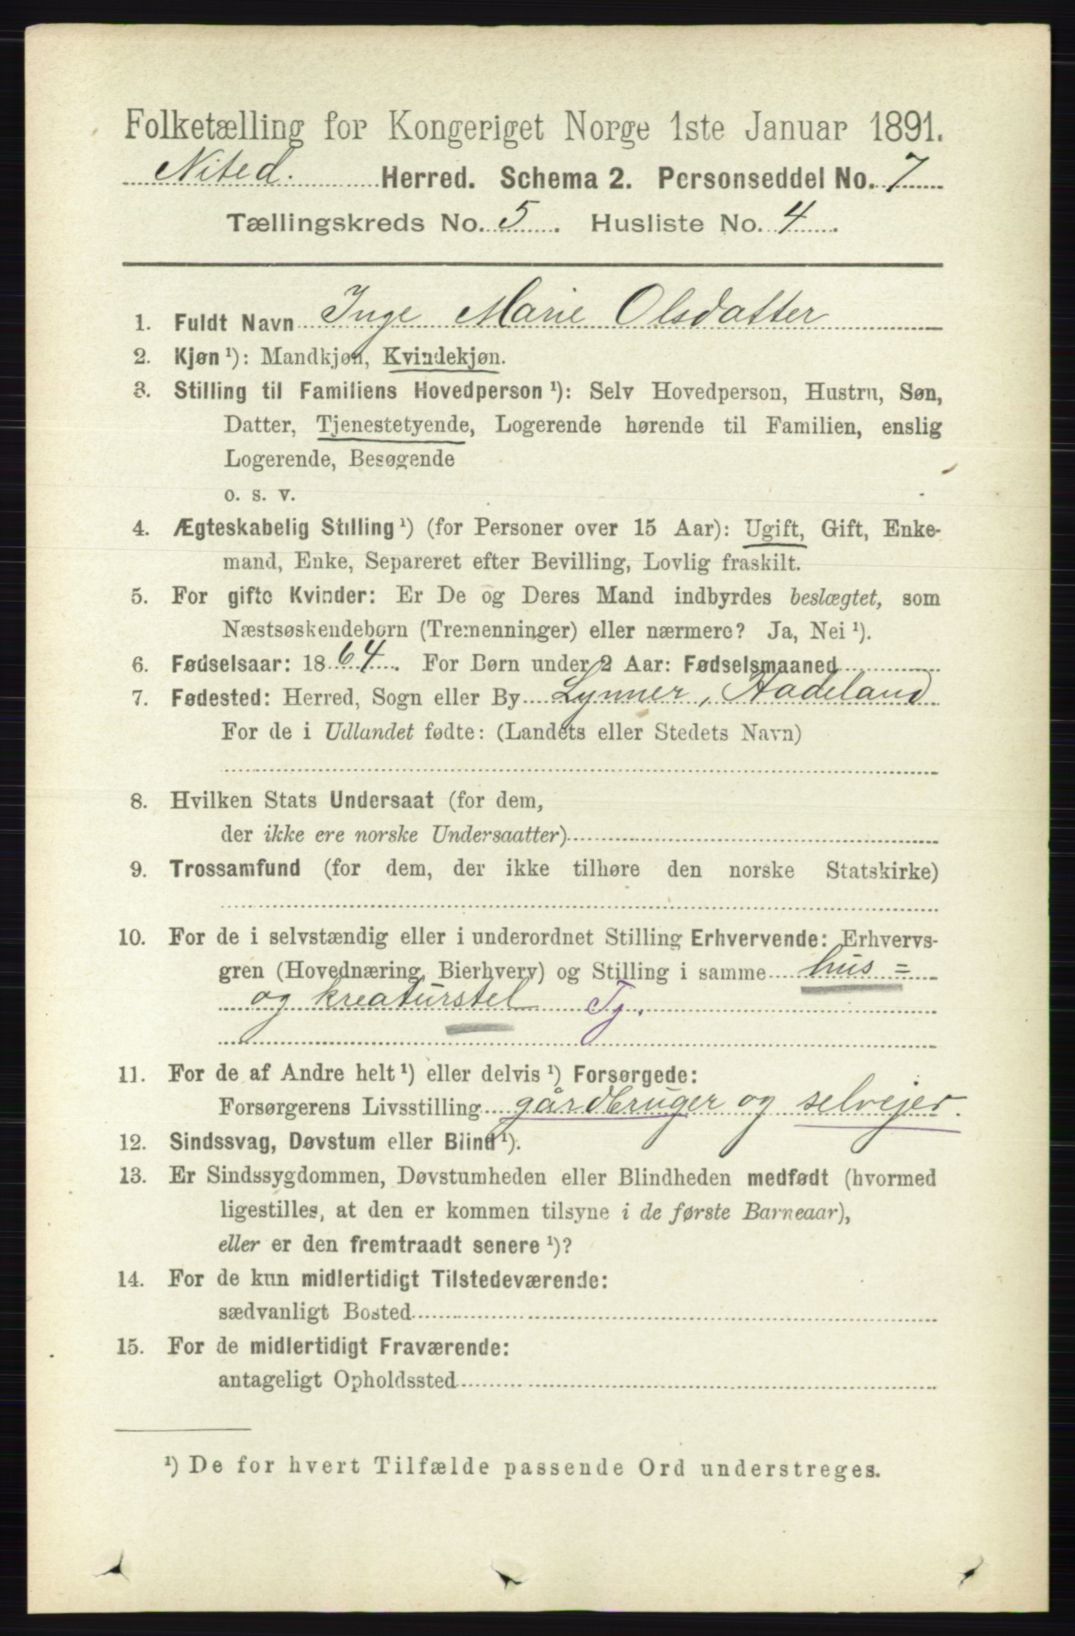 Folketælling for Kongeriget Norge 1ste Januar 1891.
Nited. Herred. Schema 2. Personseddel No. 7
Tællingskreds No. 5. Husliste No. 4.
1. Fuldt Navn Inge Marie Olsdatter
2. Kjøn ¹): Mandkjøn, Kvindekjøn.
3. Stilling til Familiens Hovedperson ¹): Selv Hovedperson, Hustru, Søn,
Datter, Tjenestetyende, Logerende hørende til Familien, enslig
Logerende, Besøgende
o. s. v.
4. Ægteskabelig Stilling ¹) (for Personer over 15 Aar): Ugift, Gift, Enke-
mand, Enke, Separeret efter Bevilling, Lovlig fraskilt.
5. For gifte Kvinder: Er De og Deres Mand indbyrdes beslægtet, som
Næstsøskendebørn (Tremenninger) eller nærmere? Ja, Nei ¹).
6. Fødselsaar: 1864. For Børn under 2 Aar: Fødselsmaaned
7. Fødested: Herred, Sogn eller By Lynner, Hadeland
For de i Udlandet fødte: (Landets eller Stedets Navn)
8. Hvilken Stats Undersaat (for dem,
der ikke ere norske Undersaatter)
9. Trossamfund (for dem, der ikke tilhøre den norske Statskirke)
10. For de i selvstændig eller i underordnet Stilling Erhvervende: Erhvervs-
gren (Hovednæring, Bierhverv) og Stilling i samme hus=
og kreaturstel Tj.
11. For de af Andre helt ¹) eller delvis ¹) Forsørgede:
Forsørgerens Livsstilling gårdbruger og selvejer.
12. Sindssvag, Døvstum eller Blind ¹).
13. Er Sindssygdommen, Døvstumheden eller Blindheden medfødt (hvormed
ligestilles, at den er kommen tilsyne i de første Barneaar),
eller er den fremtraadt senere ¹)?
14. For de kun midlertidigt Tilstedeværende:
sædvanligt Bosted
15. For de midlertidigt Fraværende:
antageligt Opholdssted
¹) De for hvert Tilfælde passende Ord understreges.